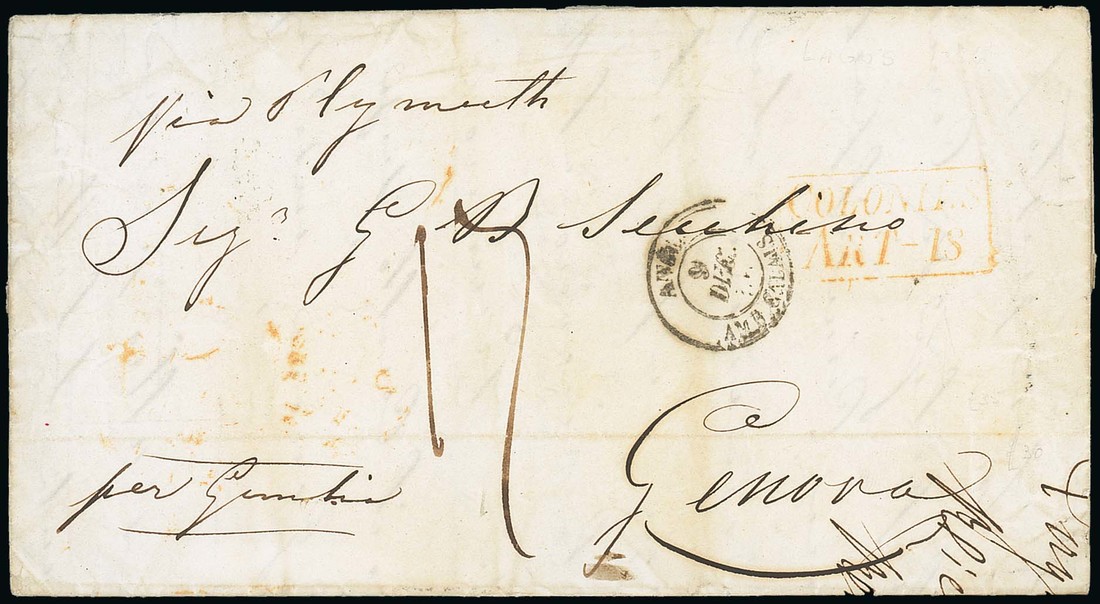 LAGOS
via Plymouth
Sigr G B
COLONIES
ART-18
ANGL.
9
DEC.
AMB. CALAIS
17
per Gambia
Genova
£30